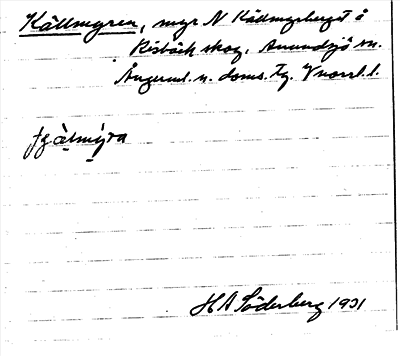 Källmyren, myr N Källmyrberget å
Risbäck skog, Anundsjö sn.
Ångerml. n. doms. tg. Vnorrl. l.
fg àlmýra
H A Söderberg 1931